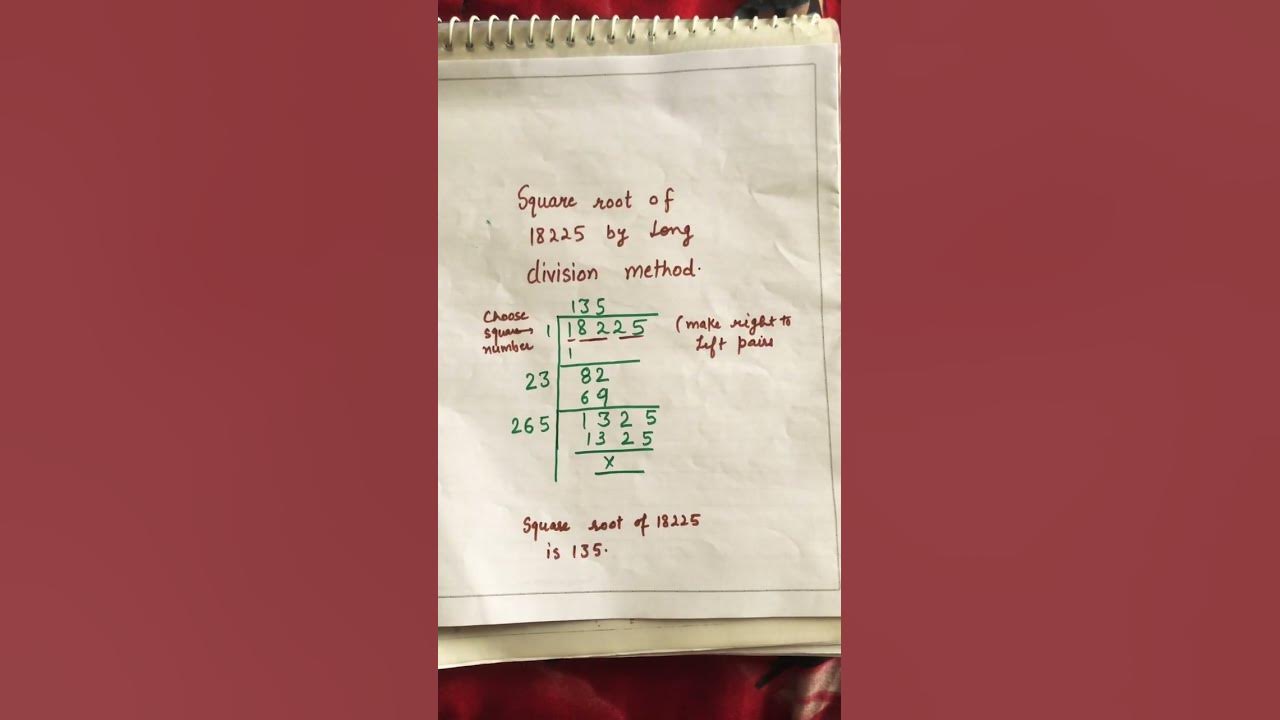 Square root of
18225 by Long
division method.
135
Choose
square
number
1
18225
(make right to
Left pairs
1
23
82
69
265
1325
1325
x
Square root of 18225
is 135.